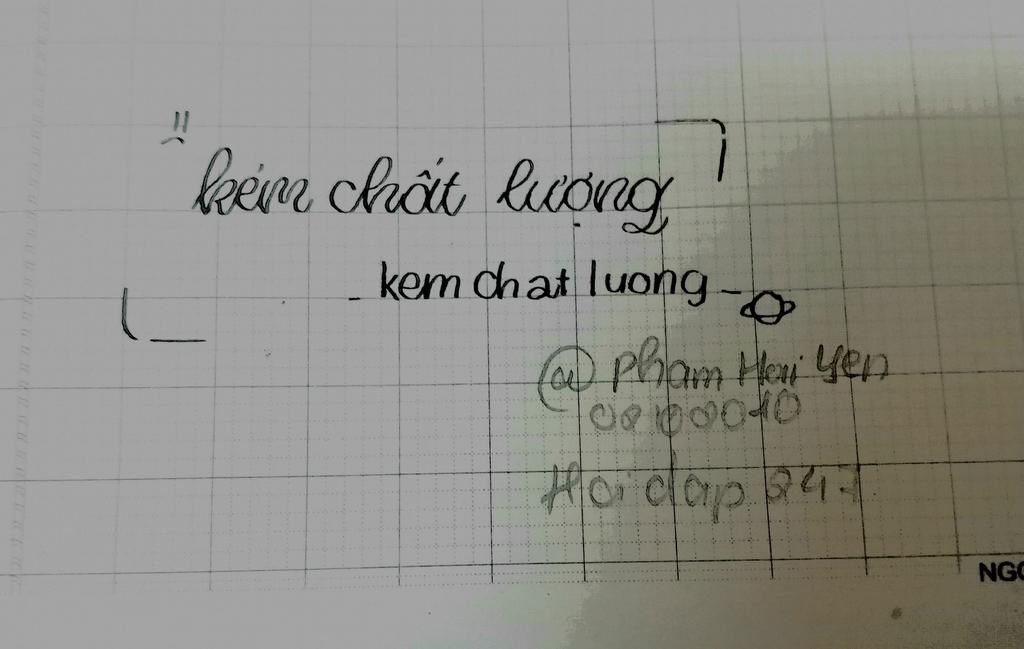 kém chất lượng
- kem chat luong -
@ Pham Hai Yen
Hoi dap 247
NGO